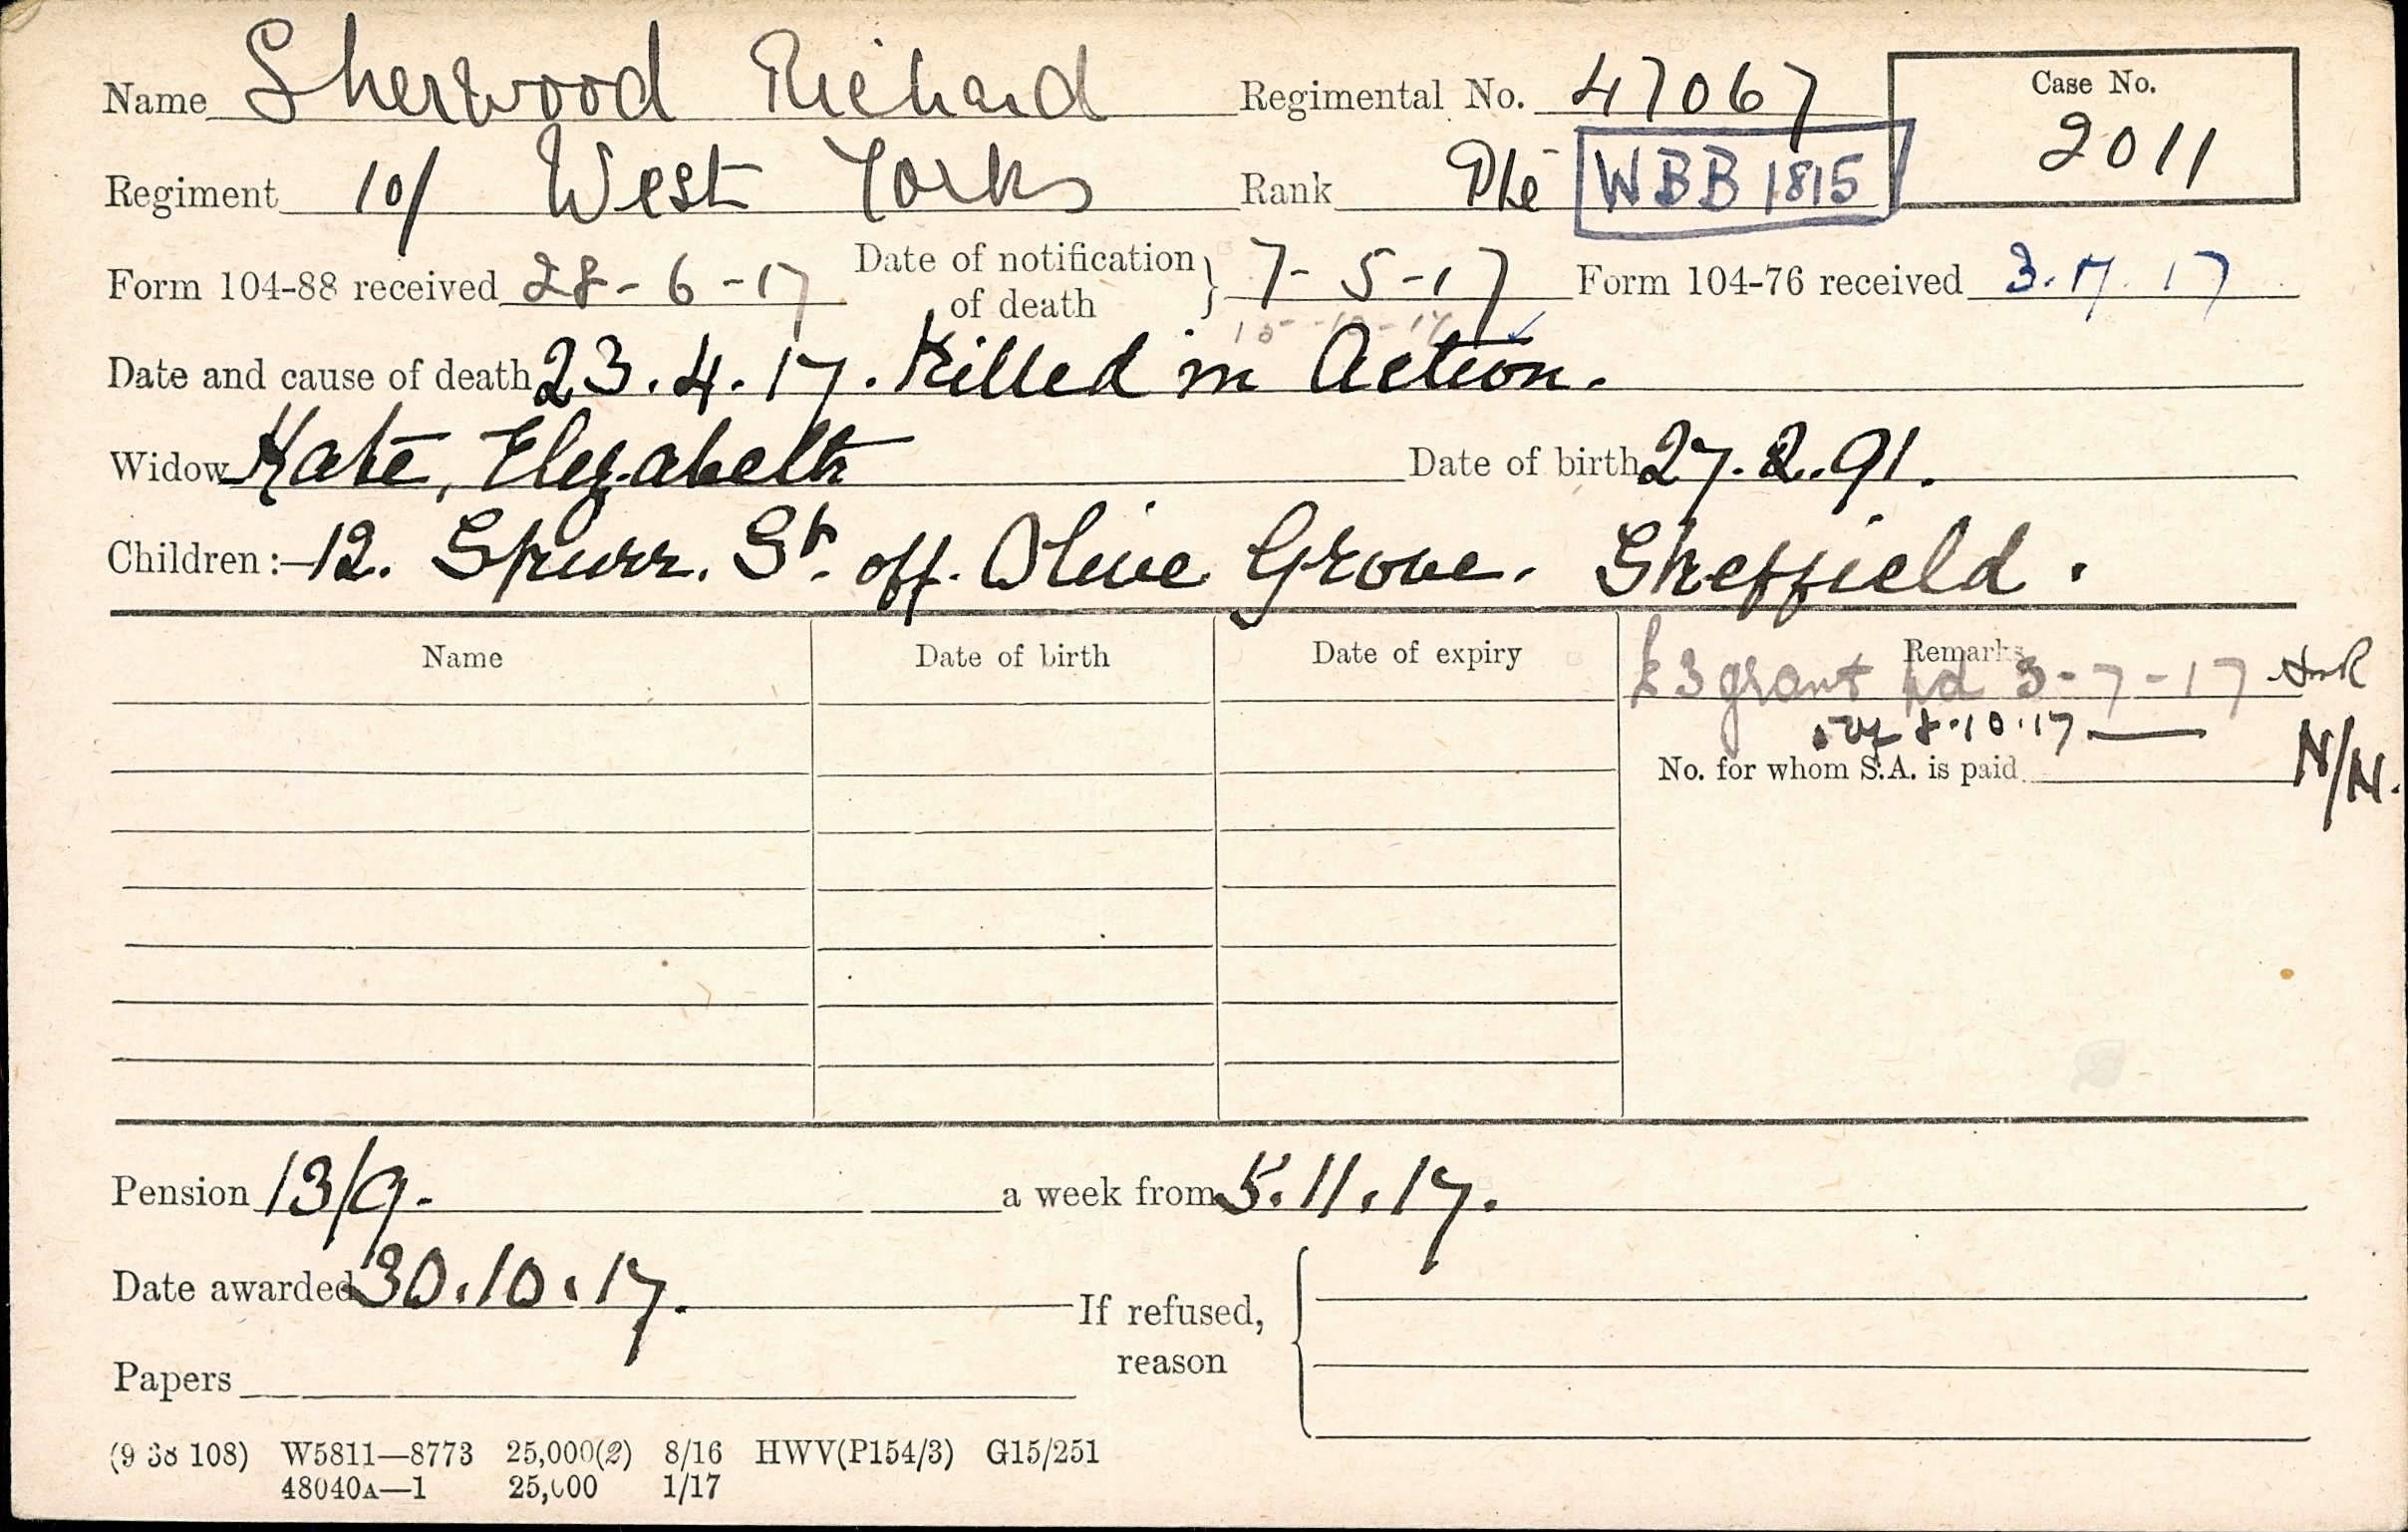 Name Sherwood Richard Regimental No. 47067 Case No. 2011
Regiment 10/ West Yorks Rank Pte WBB 1815
Form 104-88 received 28-6-17 Date of notification of death } 7-5-17 Form 104-76 received 3.7.17
Date and cause of death 23.4.17. Killed in Action.
Widow Kate, Elizabeth Date of birth 27.2.91.
Children:— 12. Spurr. St. off. Olive Grove. Sheffield.
Name Date of birth Date of expiry Remarks
£3 grant pd 3-7-17
8.10.17
No. for whom S.A. is paid N/N.
Pension 13/9. a week from 5.11.17.
Date awarded 30.10.17.
If refused, reason
Papers
(9 38 108) W5811—8773 25,000(2) 8/16 HWV(P154/3) G15/251
48040A—1 25,000 1/17